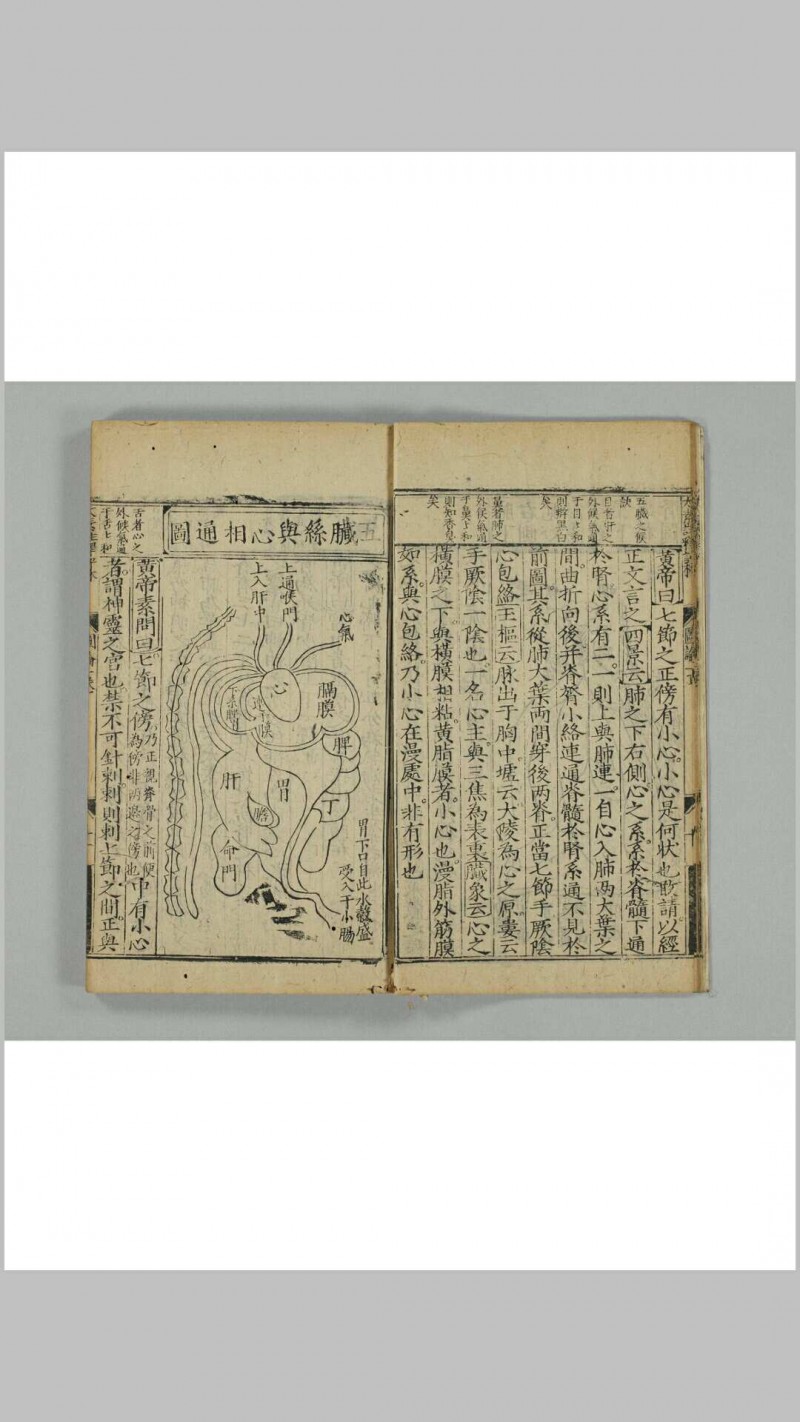 五臟之候
目者肝之
外候氣通
于目目和
則辨黑白
矣
鼻者肺之
外候氣通
于鼻鼻和
則知香臭
矣
黃帝曰七節之正傍有小心小心是何狀也敢請以經
正文言之四景云肺之下右側心之系系於脊髓下通
於腎心系有二一則上與肺連一自心入肺兩大葉之
間曲折向後并脊膂小絡連通脊髓於腎系通不見於
前圖其系從肺大葉兩間穿後两脊正當七節手厥陰
心包絡玉樞云脉出于胸中墟云大陵為心之原婁云
手厥陰一陰也一名心主與三焦為表裏臟象云心之
橫膜之下與橫膜相粘黃脂膜者小心也漫脂外筋膜
如系與心包絡乃小心在漫處中非有形也
五臟絲與心相通圖
心氣
上通喉門
上入肝中
膈膜
脾
肝
胃
膽
命門
胃下口自此水穀盛
受入于小腸
舌者心之
外候氣通
于舌舌和
黃帝素問曰七節之傍乃正視脊骨之前便
為傍非兩邊為傍也中有小心
者謂神靈之宮也禁不可針刺刺則刺七節之間正與